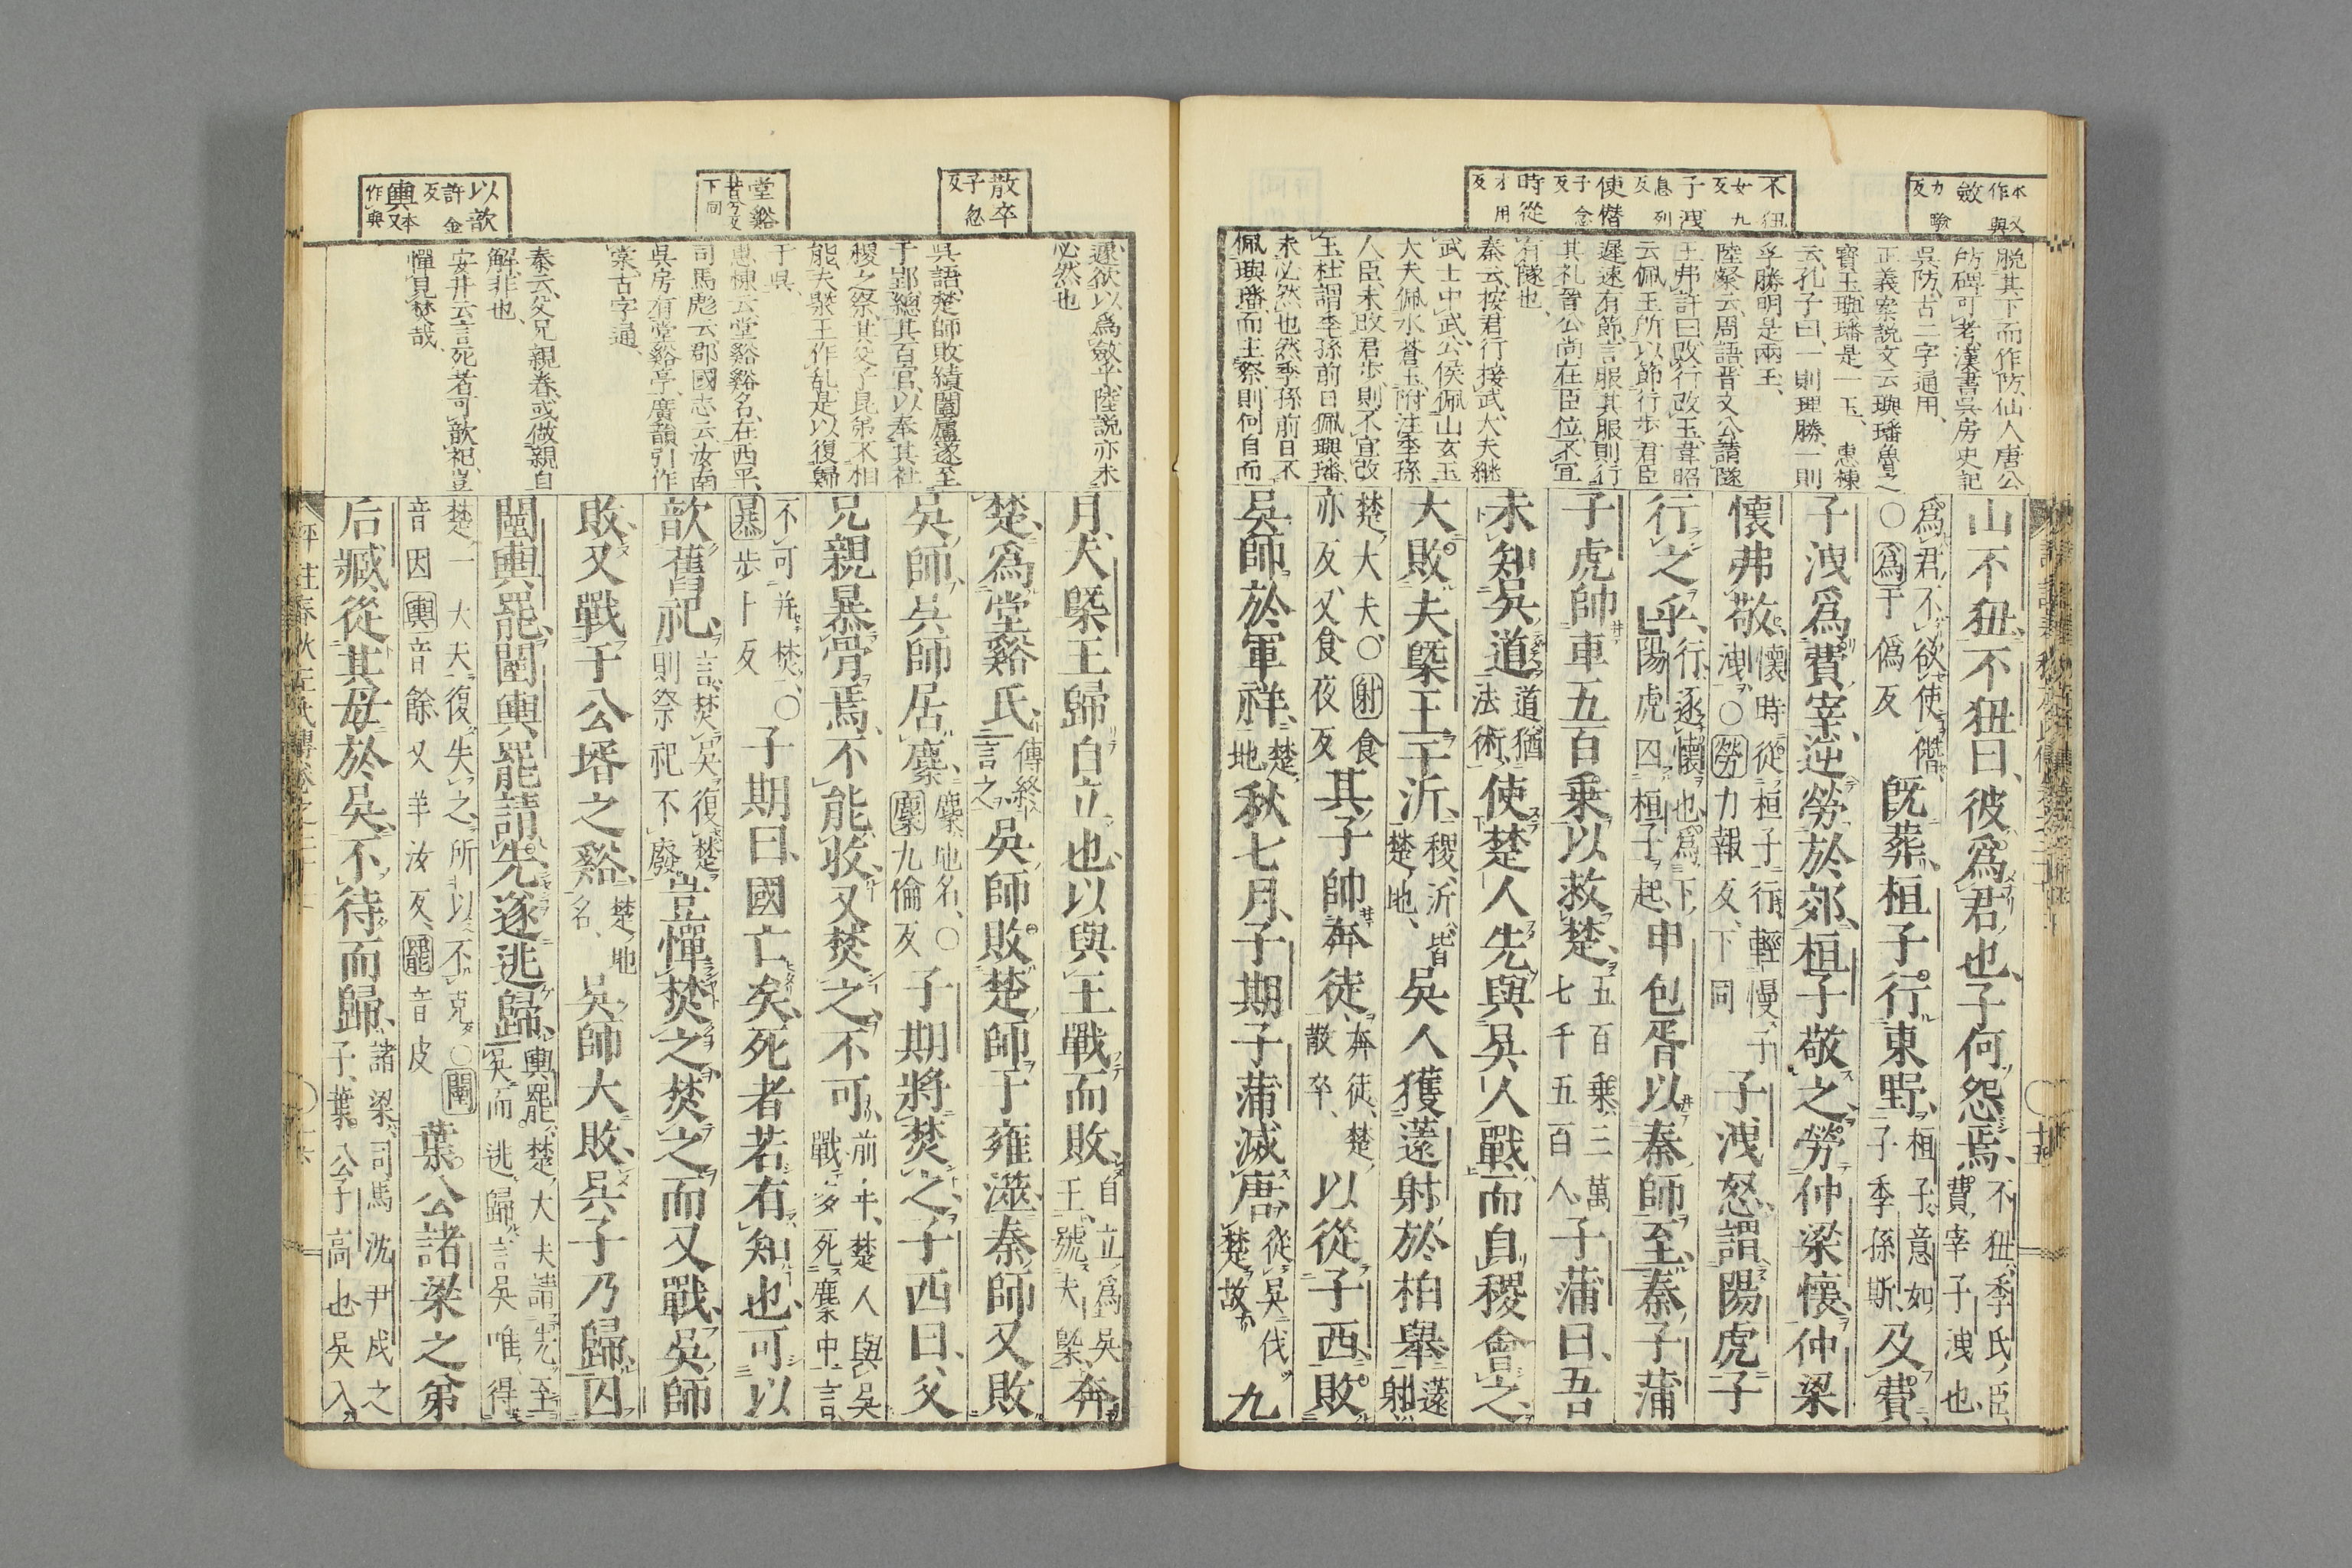 本又作與
斂力驗反
不狃女九反
子洩息列反
使僭子念反
時從才用反
脫其下而作防仙人唐公
防碑可考漢書吳房史記
吳防古二字通用、
正義案說文云璵璠魯之
寶玉璵璠是一玉、惠棟
云孔子曰、一則理勝、一則
孚勝明是兩玉、
陸粲云周語晋文公請隧
王弗許曰改行改玉韋昭
云佩玉所以節行步君臣
遲速有節言服其服則行
其礼晉公尚在臣位不宜
有隧也、
秦云按君行接武大夫継
武士中武公侯佩山玄玉
大夫佩水蒼玉附注季孫
人臣未改君步則不宜改
玉杜謂季孫前日佩璵璠
未必然也然季孫前日不
佩璵璠而主祭則何自而
山不狃、不狃曰、彼爲君也、子何怨焉、不狃、季氏臣、費宰子洩也、
爲君、不欲使僭、○爲于僞反既葬、桓子行東野、桓子、意如子季孫斯、及費、
子洩爲費宰、逆勞於郊、桓子敬之、勞仲梁懷、仲梁
懷弗敬、懷時從桓子行、輕慢子洩、○勞力報反、下同子洩怒、謂陽虎、子
行之乎、行、逐懷也、爲下陽虎囚桓子起、申包胥以秦師至、秦子蒲
子虎帥車五百乘以救楚、五百乘、三萬七千五百人、子蒲曰、吾
未知吳道、道猶法術、使楚人先與吳人戰、而自稷會之、
大敗夫槩王于沂、稷沂、皆楚地、吳人獲薳射於柏舉、薳射
楚大夫、○射食亦反、又食夜反其子帥奔徒、奔徒、楚散卒、以從子西、敗
吳師於軍祥、楚地秋七月、子期子蒲滅唐、從吳伐楚故九
散卒子忽反
堂谿昔兮反下同
以歆許金反
輿本又作與
遽欲以爲斂乎陸說亦未
必然也
吳語楚師敗績闔廬遂至
于郢總其百官以奉其社
稷之祭其父子昆弟不相
能夫槩王作乱是以復歸
于吳、
惠棟云堂谿谿名在西平、
司馬彪云郡國志云汝南
吳房有堂谿亭廣韻引作
棠古字通、
秦云父兄親眷或做親自
解非也、
安井云言死者可歆祀豈
憚見焚哉、
月、夫槩王歸自立也、以與王戰而敗、自立爲吳王、號夫槩、奔
楚、爲堂谿氏、傳終言之、吳師敗楚師于雍澨、秦師又敗
吳師、吳師居麇、麇、地名、○麇九倫反子期將焚之、子西曰、父
兄親暴骨焉、不能收、又焚之、不可、前年楚人與吳戰、多死麇中、言
不可并焚、○暴步卜反子期曰、國亡矣、死者若有知也、可以
歆舊祀、言焚吳復楚、則祭祀不廢豈憚焚之、焚之而又戰、吳師
敗、又戰于公壻之谿、楚地名、吳師大敗、吳子乃歸、囚
闉輿罷、闉輿罷請先、遂逃歸、輿罷、楚大夫請先至吳而逃歸、言吳唯得
楚一大夫、復失之、所以不克、○闉音因輿音餘、又羊汝反、罷音皮葉公諸梁之弟
后臧從其母於吳、不待而歸、諸梁、司馬沈尹戌之子、葉公子高也、吳入